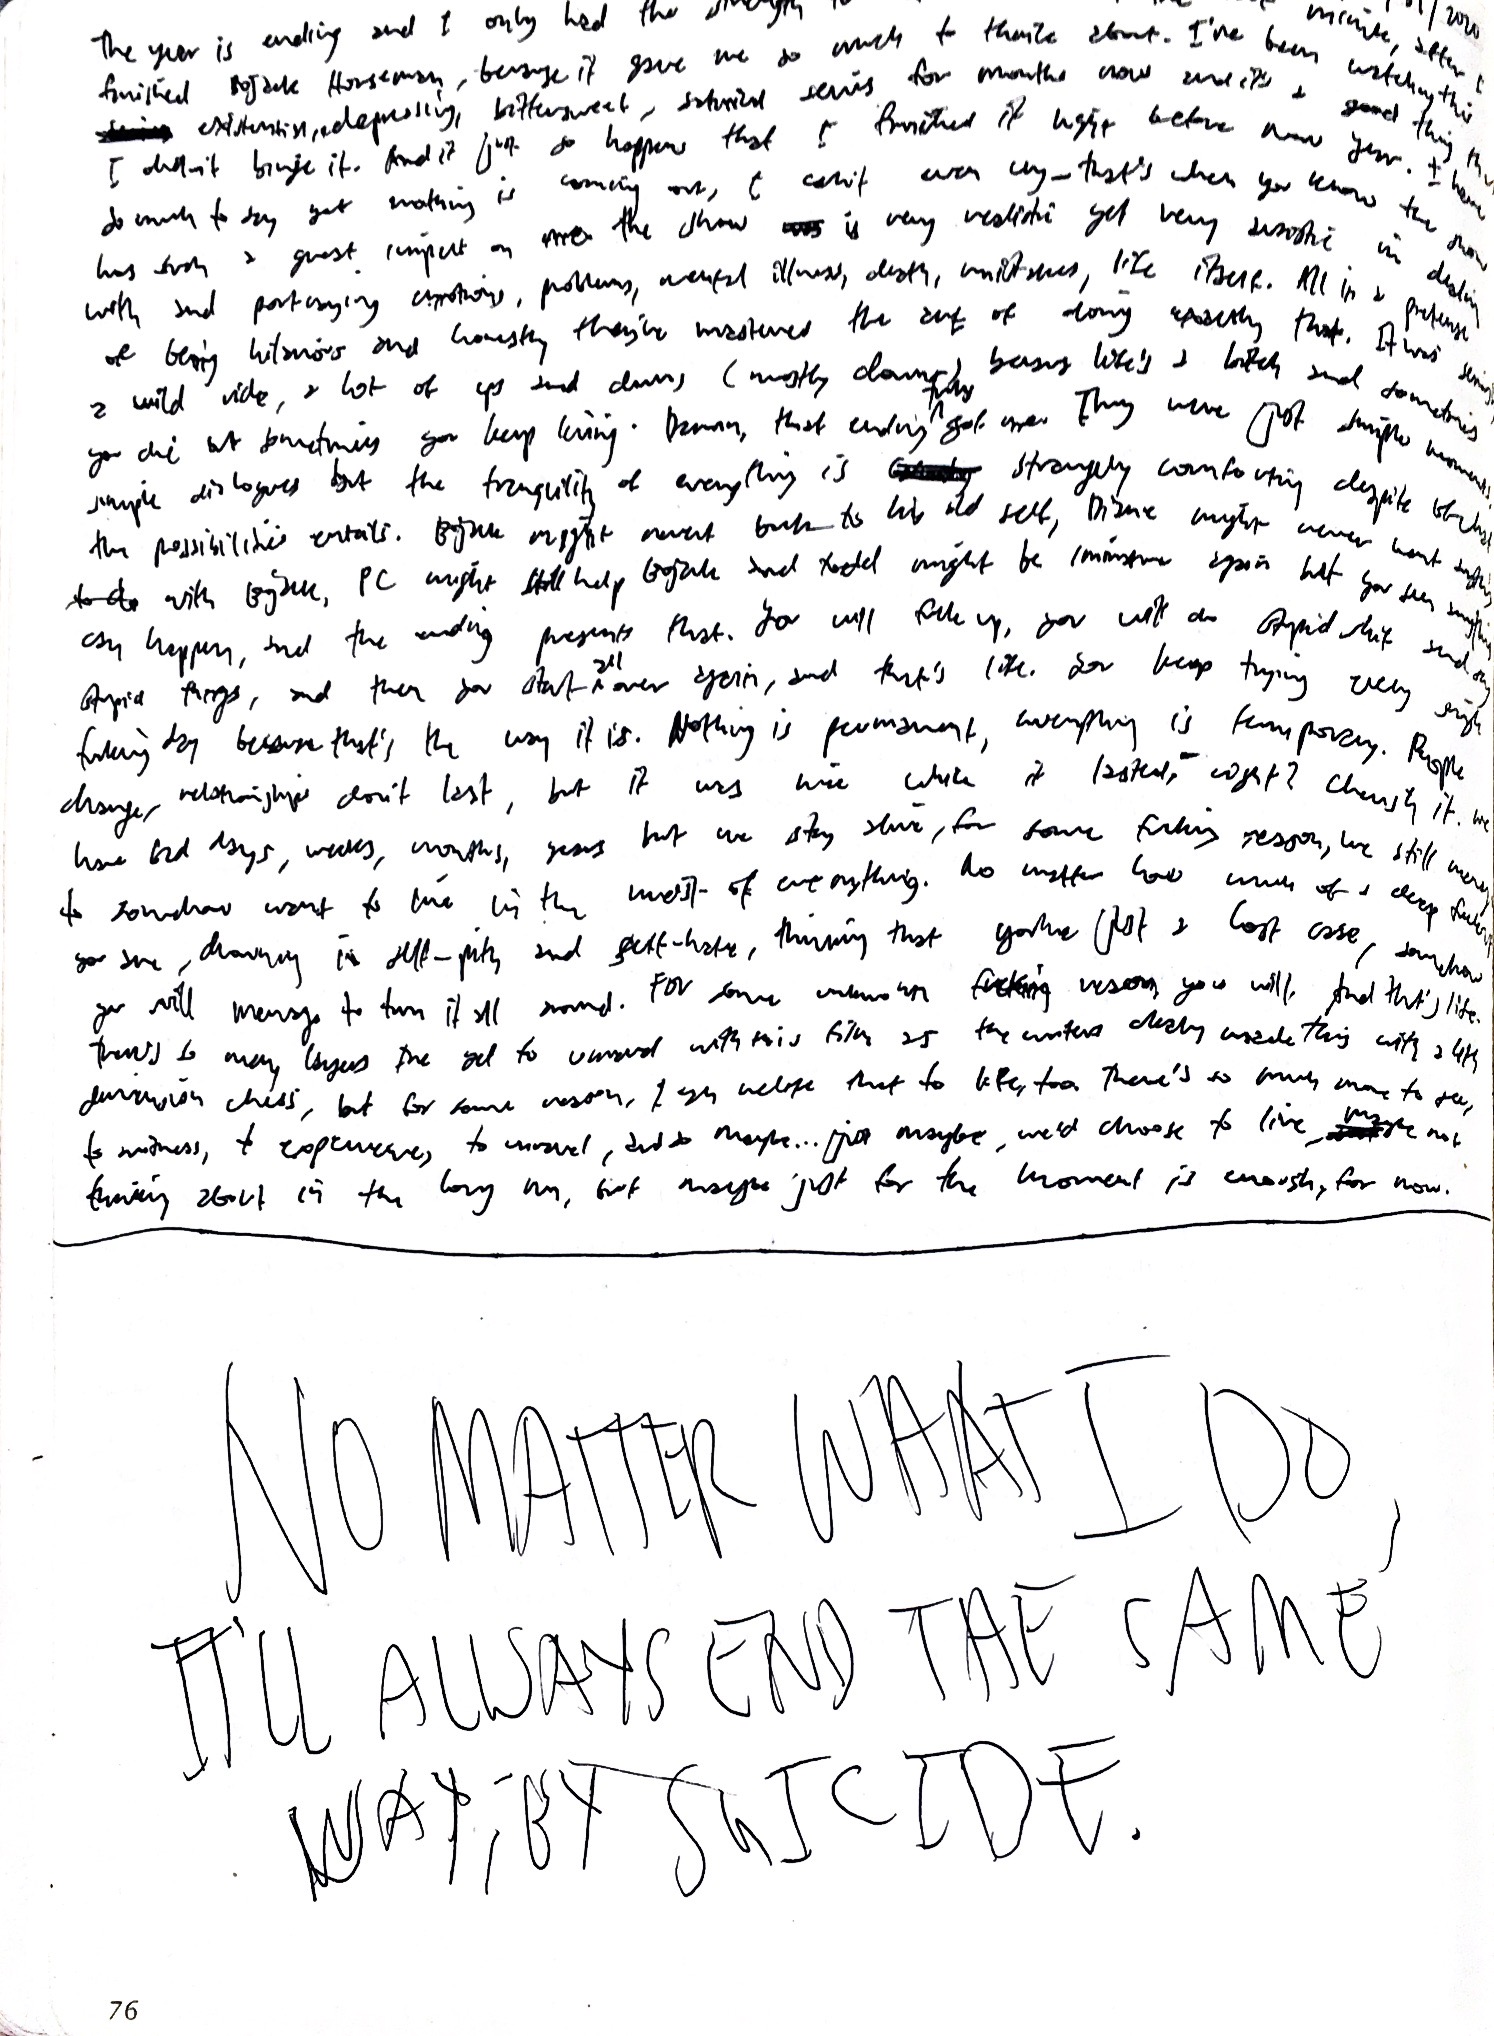 The year is ending and I only had the strength to minute, after I
finished Bojack Horseman, because it gave me so much to think about. I've been watching this
existential, depressing, bittersweet, satirical series for months now and it's a good thing that
I didn't binge it. And it just so happens that I finished it right before new year. I have
so much to say yet nothing is coming out, I can't even cry - that's when you know the show
has such a great impact on the show is very realistic yet very in dealing
with and portraying emotions, problems, mental illness, death, mistakes, life itself. All in a pretense
of being hilarious and honestly they've mastered the art of doing exactly that. It was
a wild ride, a lot of ups and downs (mostly downs) because life's a bitch and sometimes
you die but sometimes you keep living. Damn, that ending got me. They were just simple moments,
simple dialogues but the tranquility of everything is strangely comforting despite what
the possibilities entails. Bojack might revert back to his old self, Diane might never want anything
to do with Bojack, PC might still help Bojack and Todd might be again but you see anything
can happen, and the ending presents that. You will fuck up, you will do stupid shit and say
stupid things, and then you start all over again, and that's life. You keep trying every single
fucking day because that's the way it is. Nothing is permanent, everything is temporary. People
change, relationships don't last, but it was nice while it lasted, right? Cherish it. We
have bad days, weeks, months, years but we stay alive, for some fucking reason, we still manage
to somehow want to live in the midst of everything. No matter how much of a deep
you are, drowning in self-pity and self-hate, thinking that you're just a lost case, somehow
you will manage to turn it all around. For some unknown fucking reason you will. And that's life.
There's so many layers I've yet to unravel with this film as the writers clearly made this with a 4th
dimension chess, but for some reason, I can relate that to life, too. There's so much more to see,
to witness, to experience, to unravel, and so maybe... just maybe, we'd choose to live, maybe not
thinking about in the long run, but maybe just for the moment is enough, for now.
NO MATTER WHAT I DO,
IT'LL ALWAYS END THE SAME
WAY; BY SUICIDE.
76